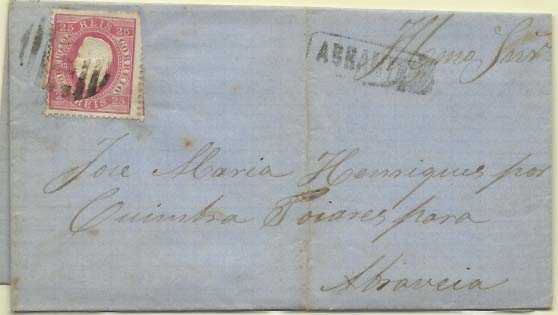 25 REIS 25
CORREIO
25 REIS 25
Illmo Snr
Jose Maria Henriques por
Coimbra Poiares para
Abraveia